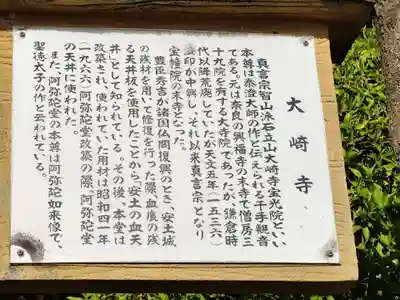 大崎寺
真言宗岩山泳石立山大崎寺宝光院といい
本尊は泰澄大師の作と伝えられる千手観音
である。元は奈良の興福寺の末寺で僧房三
十九院を有する大寺院であったが、鎌倉時
代以降荒廃していたが天文五年(一五三六)
法印が中興し、それ以来真言宗となり
宝幢院の末寺となった。
豊臣秀吉が諸国仏閣復興のとき、安土城
の残材を用いて修復を行った際、血痕の残
る天井板を使用したことから「安土の血天
井」として知られている。その後、本堂は
改築され、使われていた用材は昭和四一年
(一九六六)阿弥陀堂改築の際、阿弥陀堂
の天井に使われた。
また、阿弥陀堂の本尊は阿弥陀如来像で、
聖徳太子の作と云われている。